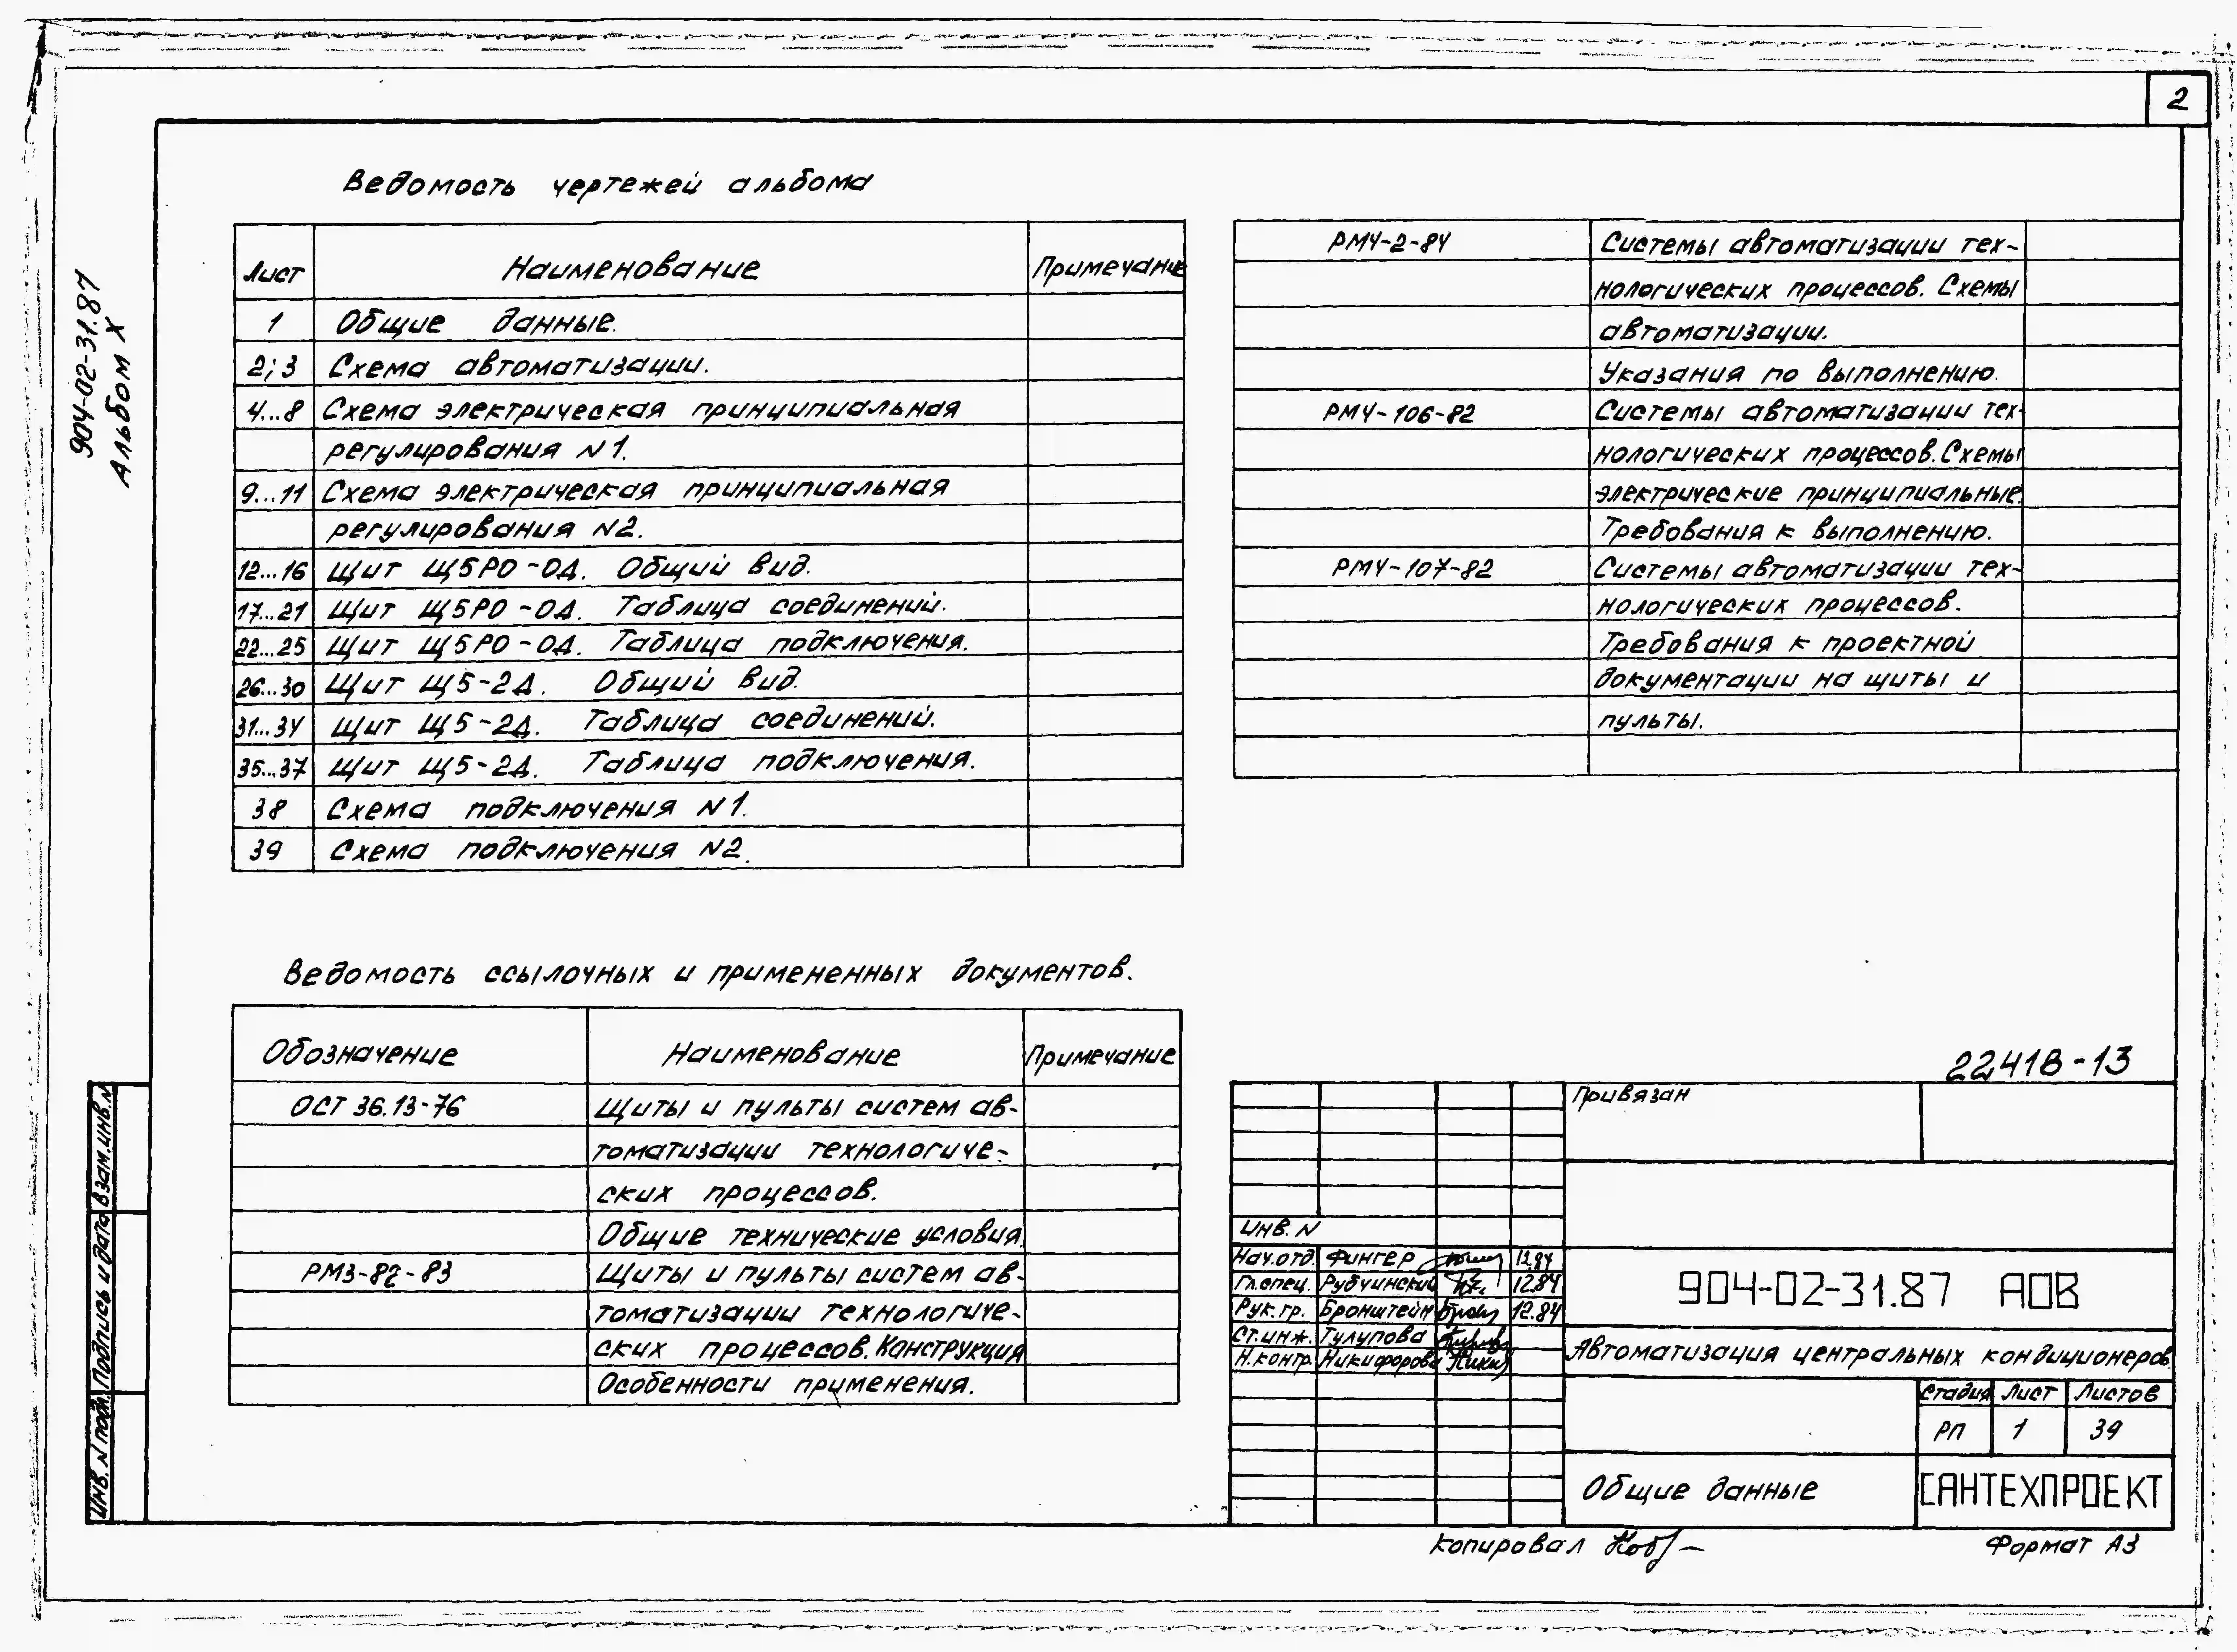 2
904-02-31.87
Альбом X
Ведомость чертежей альбома
Лист Наименование Примечание
1 Общие данные.
2; 3 Схема автоматизации.
4...8 Схема электрическая принципиальная
регулирования N1.
9...11 Схема электрическая принципиальная
регулирования N2.
12...16 Щит Щ5РО-ОД. Общий вид.
17...21 Щит Щ5РО-ОД. Таблица соединений.
22...25 Щит Щ5РО-ОД. Таблица подключения.
26...30 Щит Щ5-2Д. Общий вид.
31...34 Щит Щ5-2Д. Таблица соединений.
35...37 Щит Щ5-2Д. Таблица подключения.
38 Схема подключения N1.
39 Схема подключения N2.
Ведомость ссылочных и примененных документов.
Обозначение Наименование Примечание
ОСТ 36.13-76 Щиты и пульты систем ав-
томатизации технологиче-
ских процессов.
Общие технические условия.
РМ3-82-83 Щиты и пульты систем ав-
томатизации технологиче-
ских процессов. Конструкция
Особенности применения.
РМ4-2-84 Системы автоматизации тех-
нологических процессов. Схемы
автоматизации.
Указания по выполнению.
РМ4-106-82 Системы автоматизации тех-
нологических процессов. Схемы
электрические принципиальные.
Требования к выполнению.
РМ4-107-82 Системы автоматизации тех-
нологических процессов.
Требования к проектной
документации на щиты и
пульты.
22418-13
Привязан
Инв. N
Нач.отд. Фингер 12.84
Гл.спец. Рубчинский 12.84
Рук.гр. Бронштейн 12.84
Ст.инж. Тулупова
Н.контр. Никифорова
904-02-31.87 АОВ
Автоматизация центральных кондиционеров
Стадия Лист Листов
РП 1 39
Общие данные
САНТЕХПРОЕКТ
Взам.инв.N
Подпись и дата
Инв. N подл.
Копировал
Формат А3